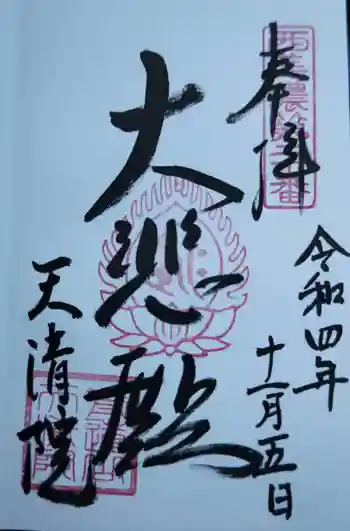 奉拝
令和四年
十一月五日
大悲殿
天清院